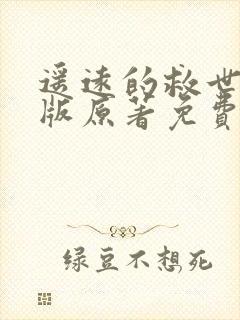 遥远的救世
版原著免费
绿豆不想死